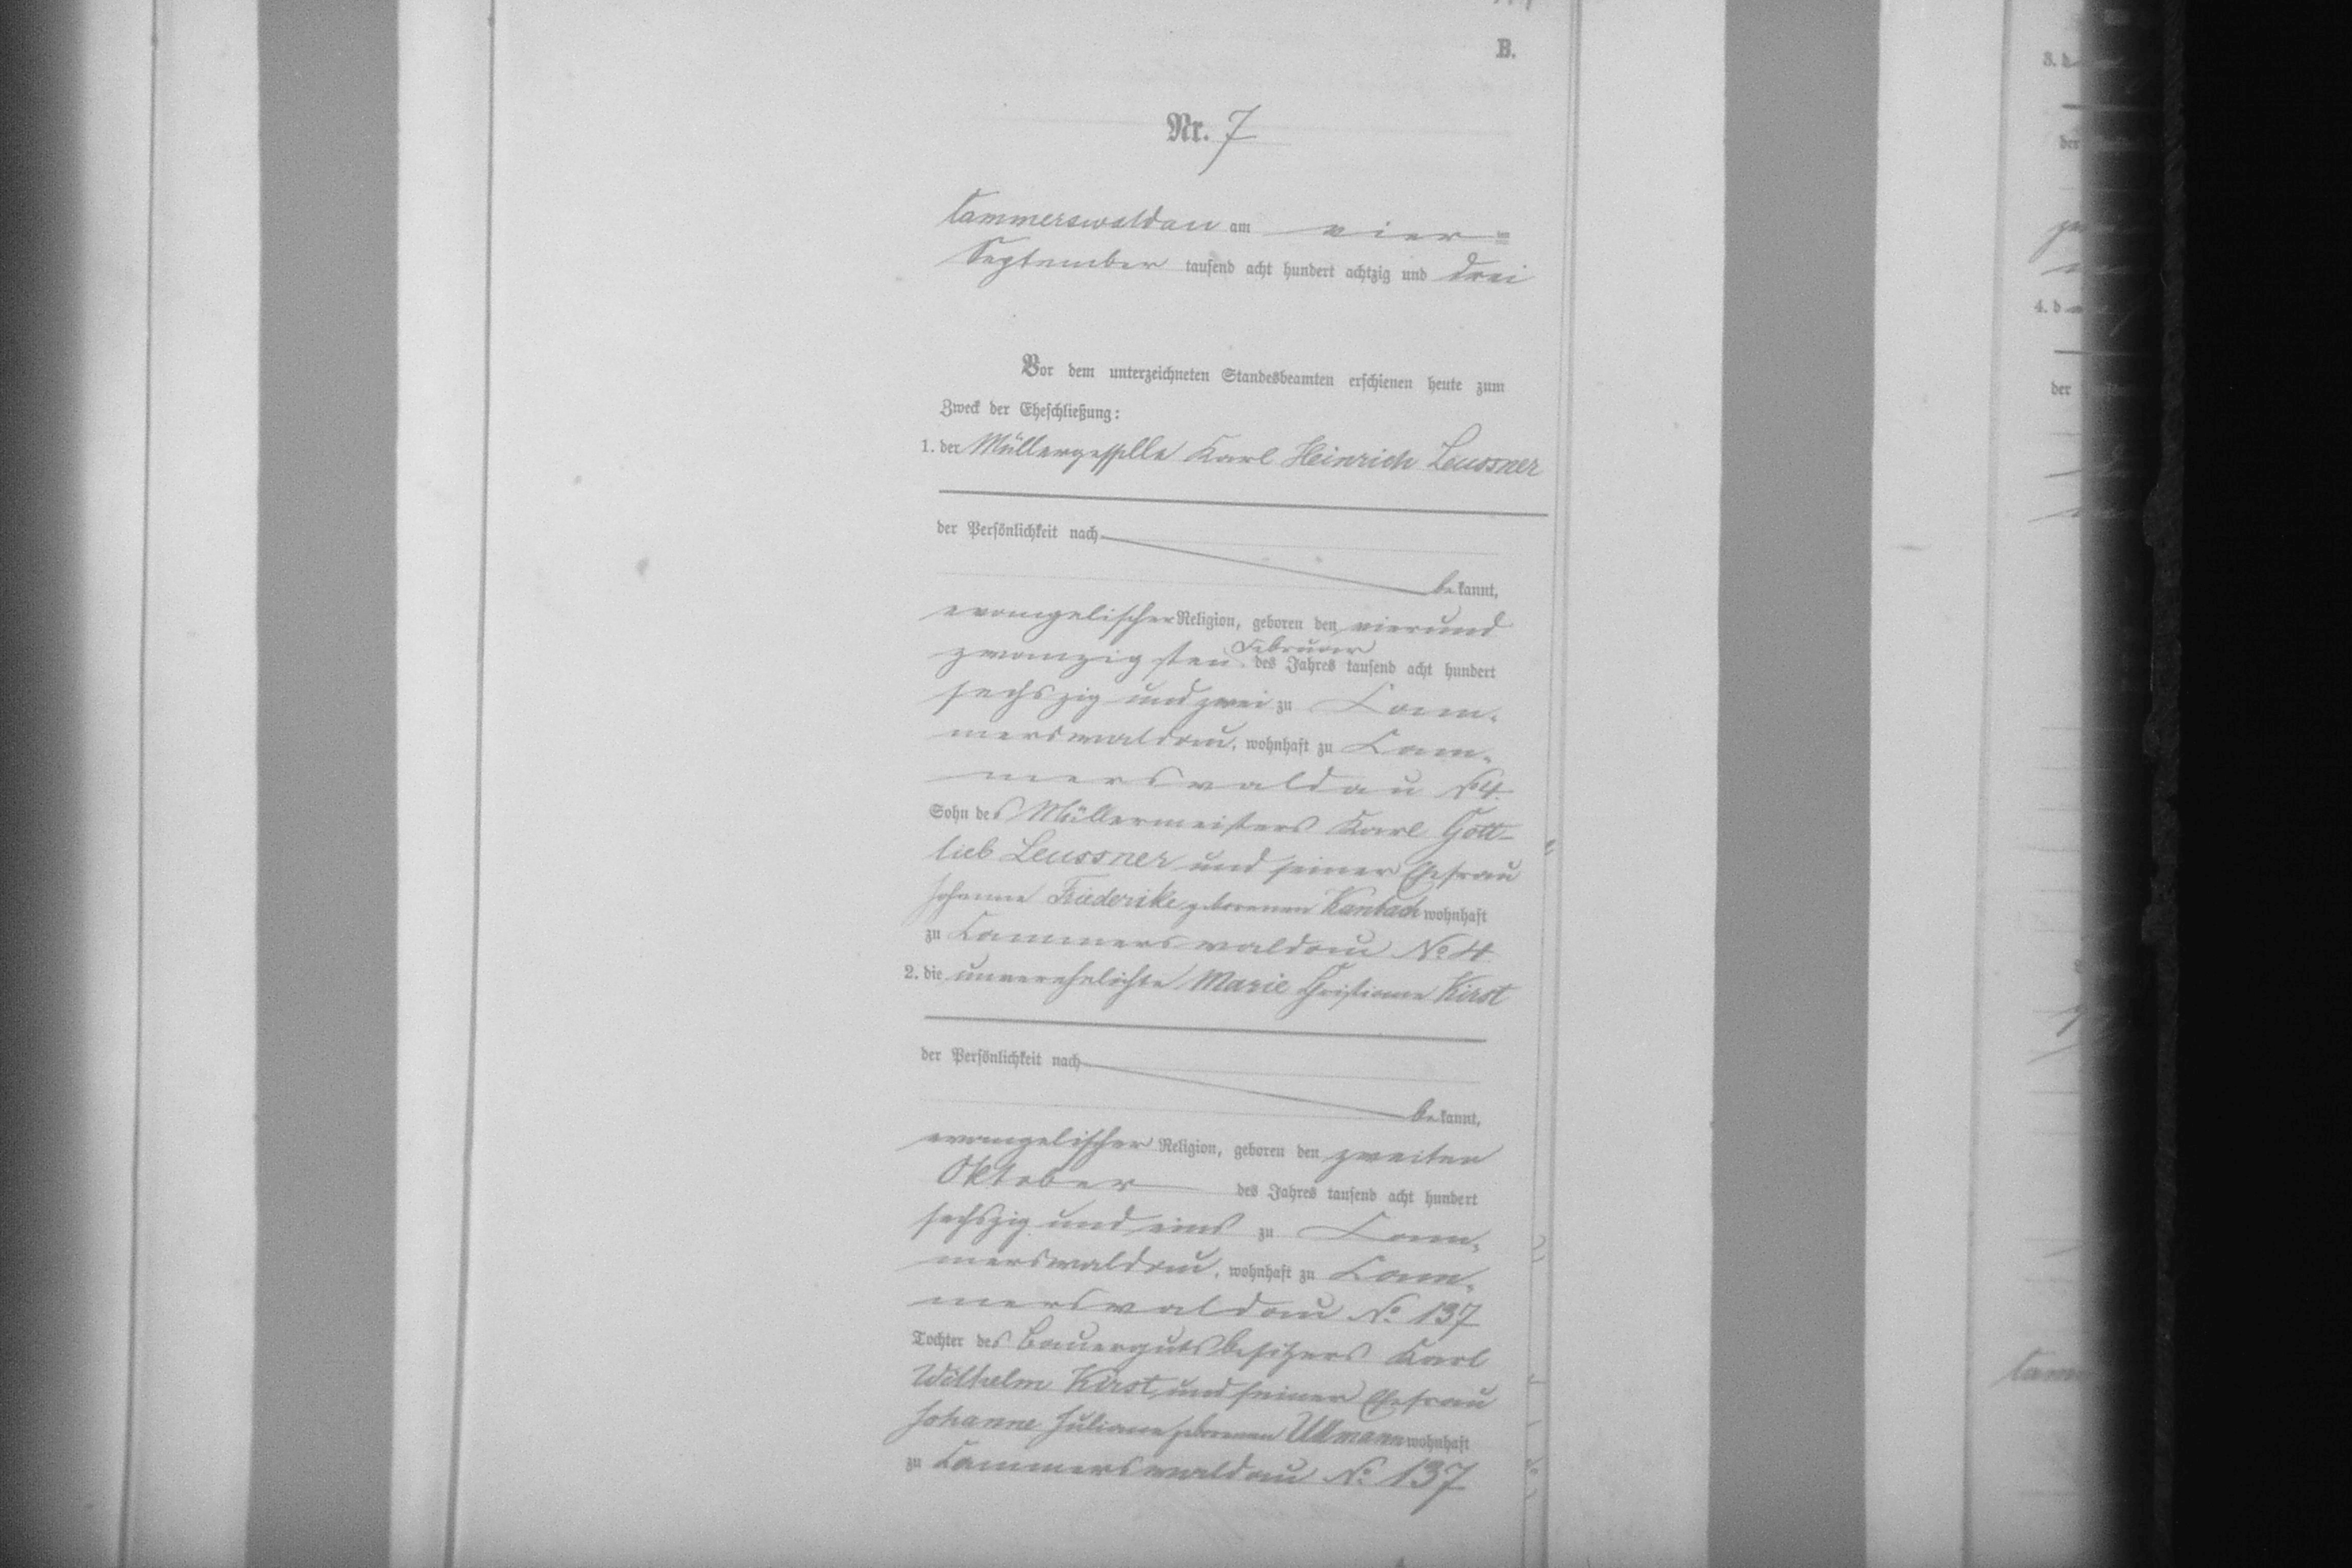 B.
Nr. 7
Cammerswaldau am vier=
September tausend acht hundert achtzig und drei
Vor dem unterzeichneten Standesbeamten erschienen heute zum
Zweck der Eheschließung:
1. der Müllergeselle Karl Heinrich Leussner
der Persönlichkeit nach
bekannt,
evangelischer Religion, geboren den vierund
zwanzigsten Februar des Jahres tausend acht hundert
sechszig und zwei zu Cam-
merswaldau, wohnhaft zu Cam-
merswaldau No 4.
Sohn des Müllermeisters Karl Gott-
lieb Leussner und seiner Ehefrau
Johanne Friederike geborenen Kambach wohnhaft
zu Cammerswaldau No 4
2. die unverehelichte Marie Christiane Kirst
der Persönlichkeit nach
bekannt,
evangelischer Religion, geboren den zweiten
Oktober des Jahres tausend acht hundert
sechszig und eins zu Cam-
merswaldau, wohnhaft zu Cam-
merswaldau No. 137
Tochter des Bauergutsbesitzers Karl
Wilhelm Kirst und seiner Ehefrau
Johanne Juliane geborenen Ullmann wohnhaft
zu Cammerswaldau No. 137
3. d
der
4. d
der